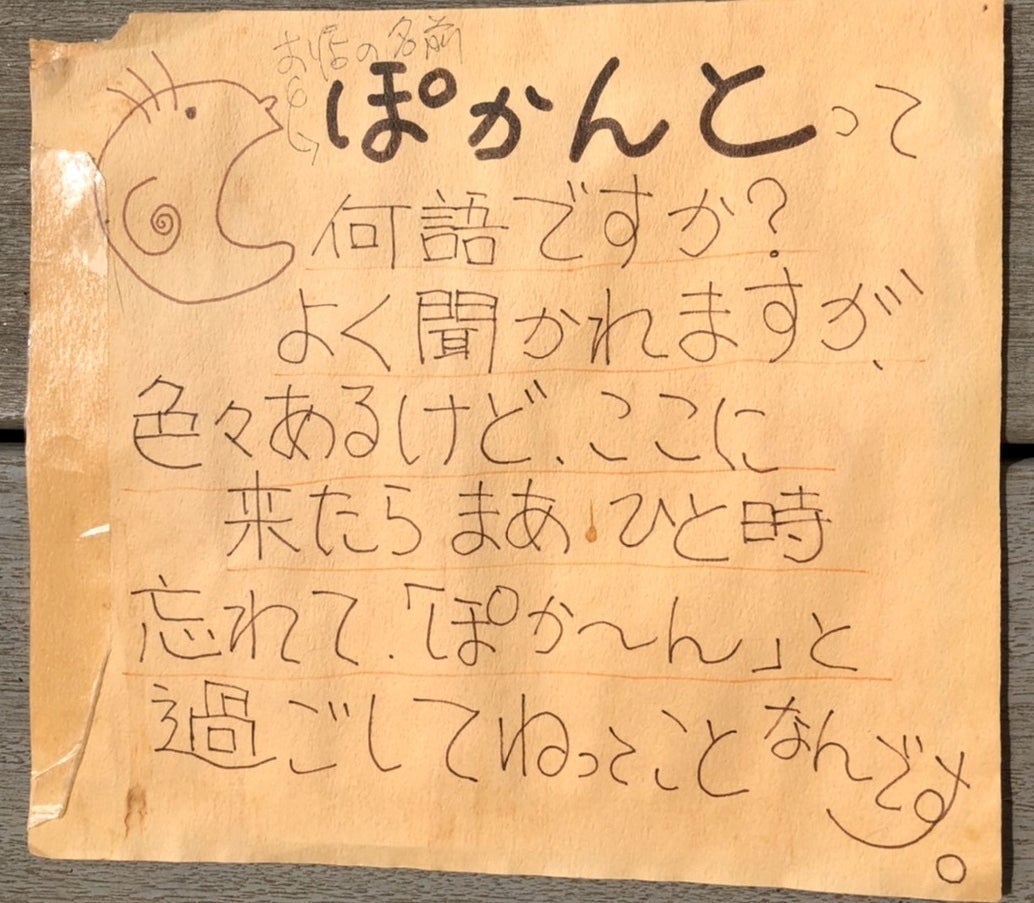 お店の名前
ぽかんとって
何語ですか?
よく聞かれますが、
色々あるけど、ここに
来たらまあひと時
忘れて、「ぽか〜ん」と
過ごしてねってことなんです。